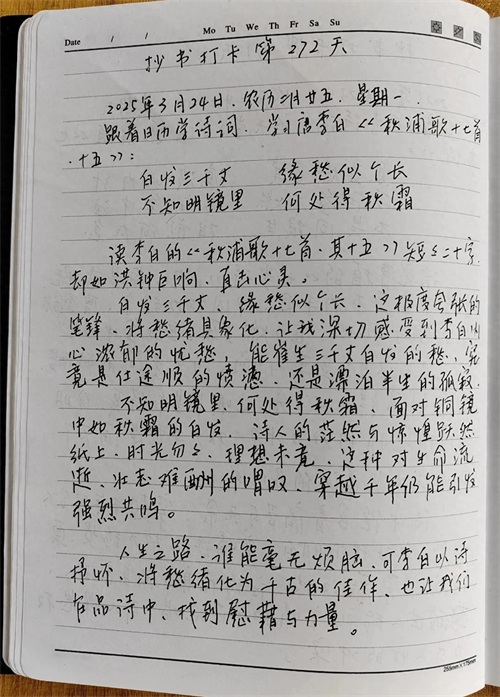 Mo Tu We Th Fr Sa Su
Date / /
抄书打卡第272天
2025年3月24日.农历二月廿五.星期一.
跟着日历学诗词.学习唐李白《秋浦歌十七首
·十五》:
白发三千丈 缘愁似个长
不知明镜里 何处得秋霜
读李白的《秋浦歌十七首·其十五》短短二十字,
却如洪钟巨响.直击心灵。
白发三千丈.缘愁似个长.这极度夸张的
笔锋.将愁绪具象化.让我深切感受到李白内
心浓郁的忧愁,能催生三千丈白发的愁,究
竟是仕途不顺的愤懑.还是漂泊半生的孤寂.
不知明镜里.何处得秋霜.面对铜镜
中如秋霜的白发.诗人的茫然与惊惶跃然
纸上.时光匆匆.理想未竟.这种对生命流
逝、壮志难酬的喟叹.穿越千年仍能引发
强烈共鸣。
人生之路.谁能毫无烦脑.可李白以诗
抒怀.将愁绪化为千古的佳作.也让我们
在品诗中.找到慰藉与力量。
255mm×175mm